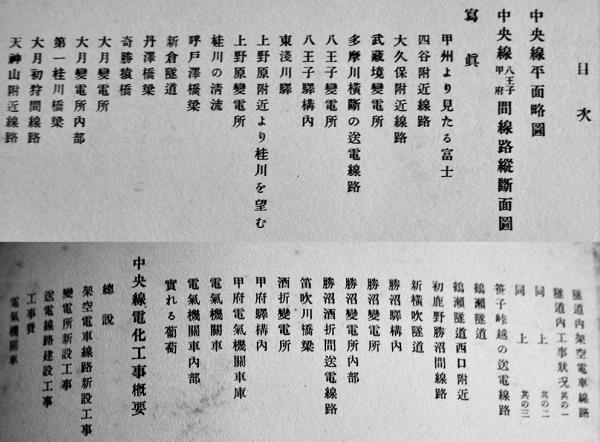 目次
中央線平面略圖
中央線八王子甲府間線路縱斷面圖
寫眞
甲州より見たる富士
四谷附近線路
大久保附近線路
武藏境變電所
多摩川橫斷の送電線路
八王子變電所
八王子驛構內
東淺川驛
上野原附近より桂川を望む
上野原變電所
桂川の清流
呼戶澤橋梁
新倉隧道
丹澤橋梁
奇勝猿橋
大月變電所
大月變電所內部
第一桂川橋梁
大月初狩間線路
天神山附近線路
隧道內架空電車線路
隧道內工事狀況其の一
同上其の二
同上其の三
笹子峠越の送電線路
鶴瀨隧道
鶴瀨隧道西口附近
初鹿野勝沼間線路
新橫吹隧道
勝沼驛構內
勝沼變電所
勝沼變電所內部
勝沼酒折間送電線路
笛吹川橋梁
酒折變電所
甲府驛構內
甲府電氣機關車庫
電氣機關車
電氣機關車內部
實れる葡萄
中央線電化工事概要
總說
架空電車線路新設工事
變電所新設工事
送電線路建設工事
工事費
電氣機關車